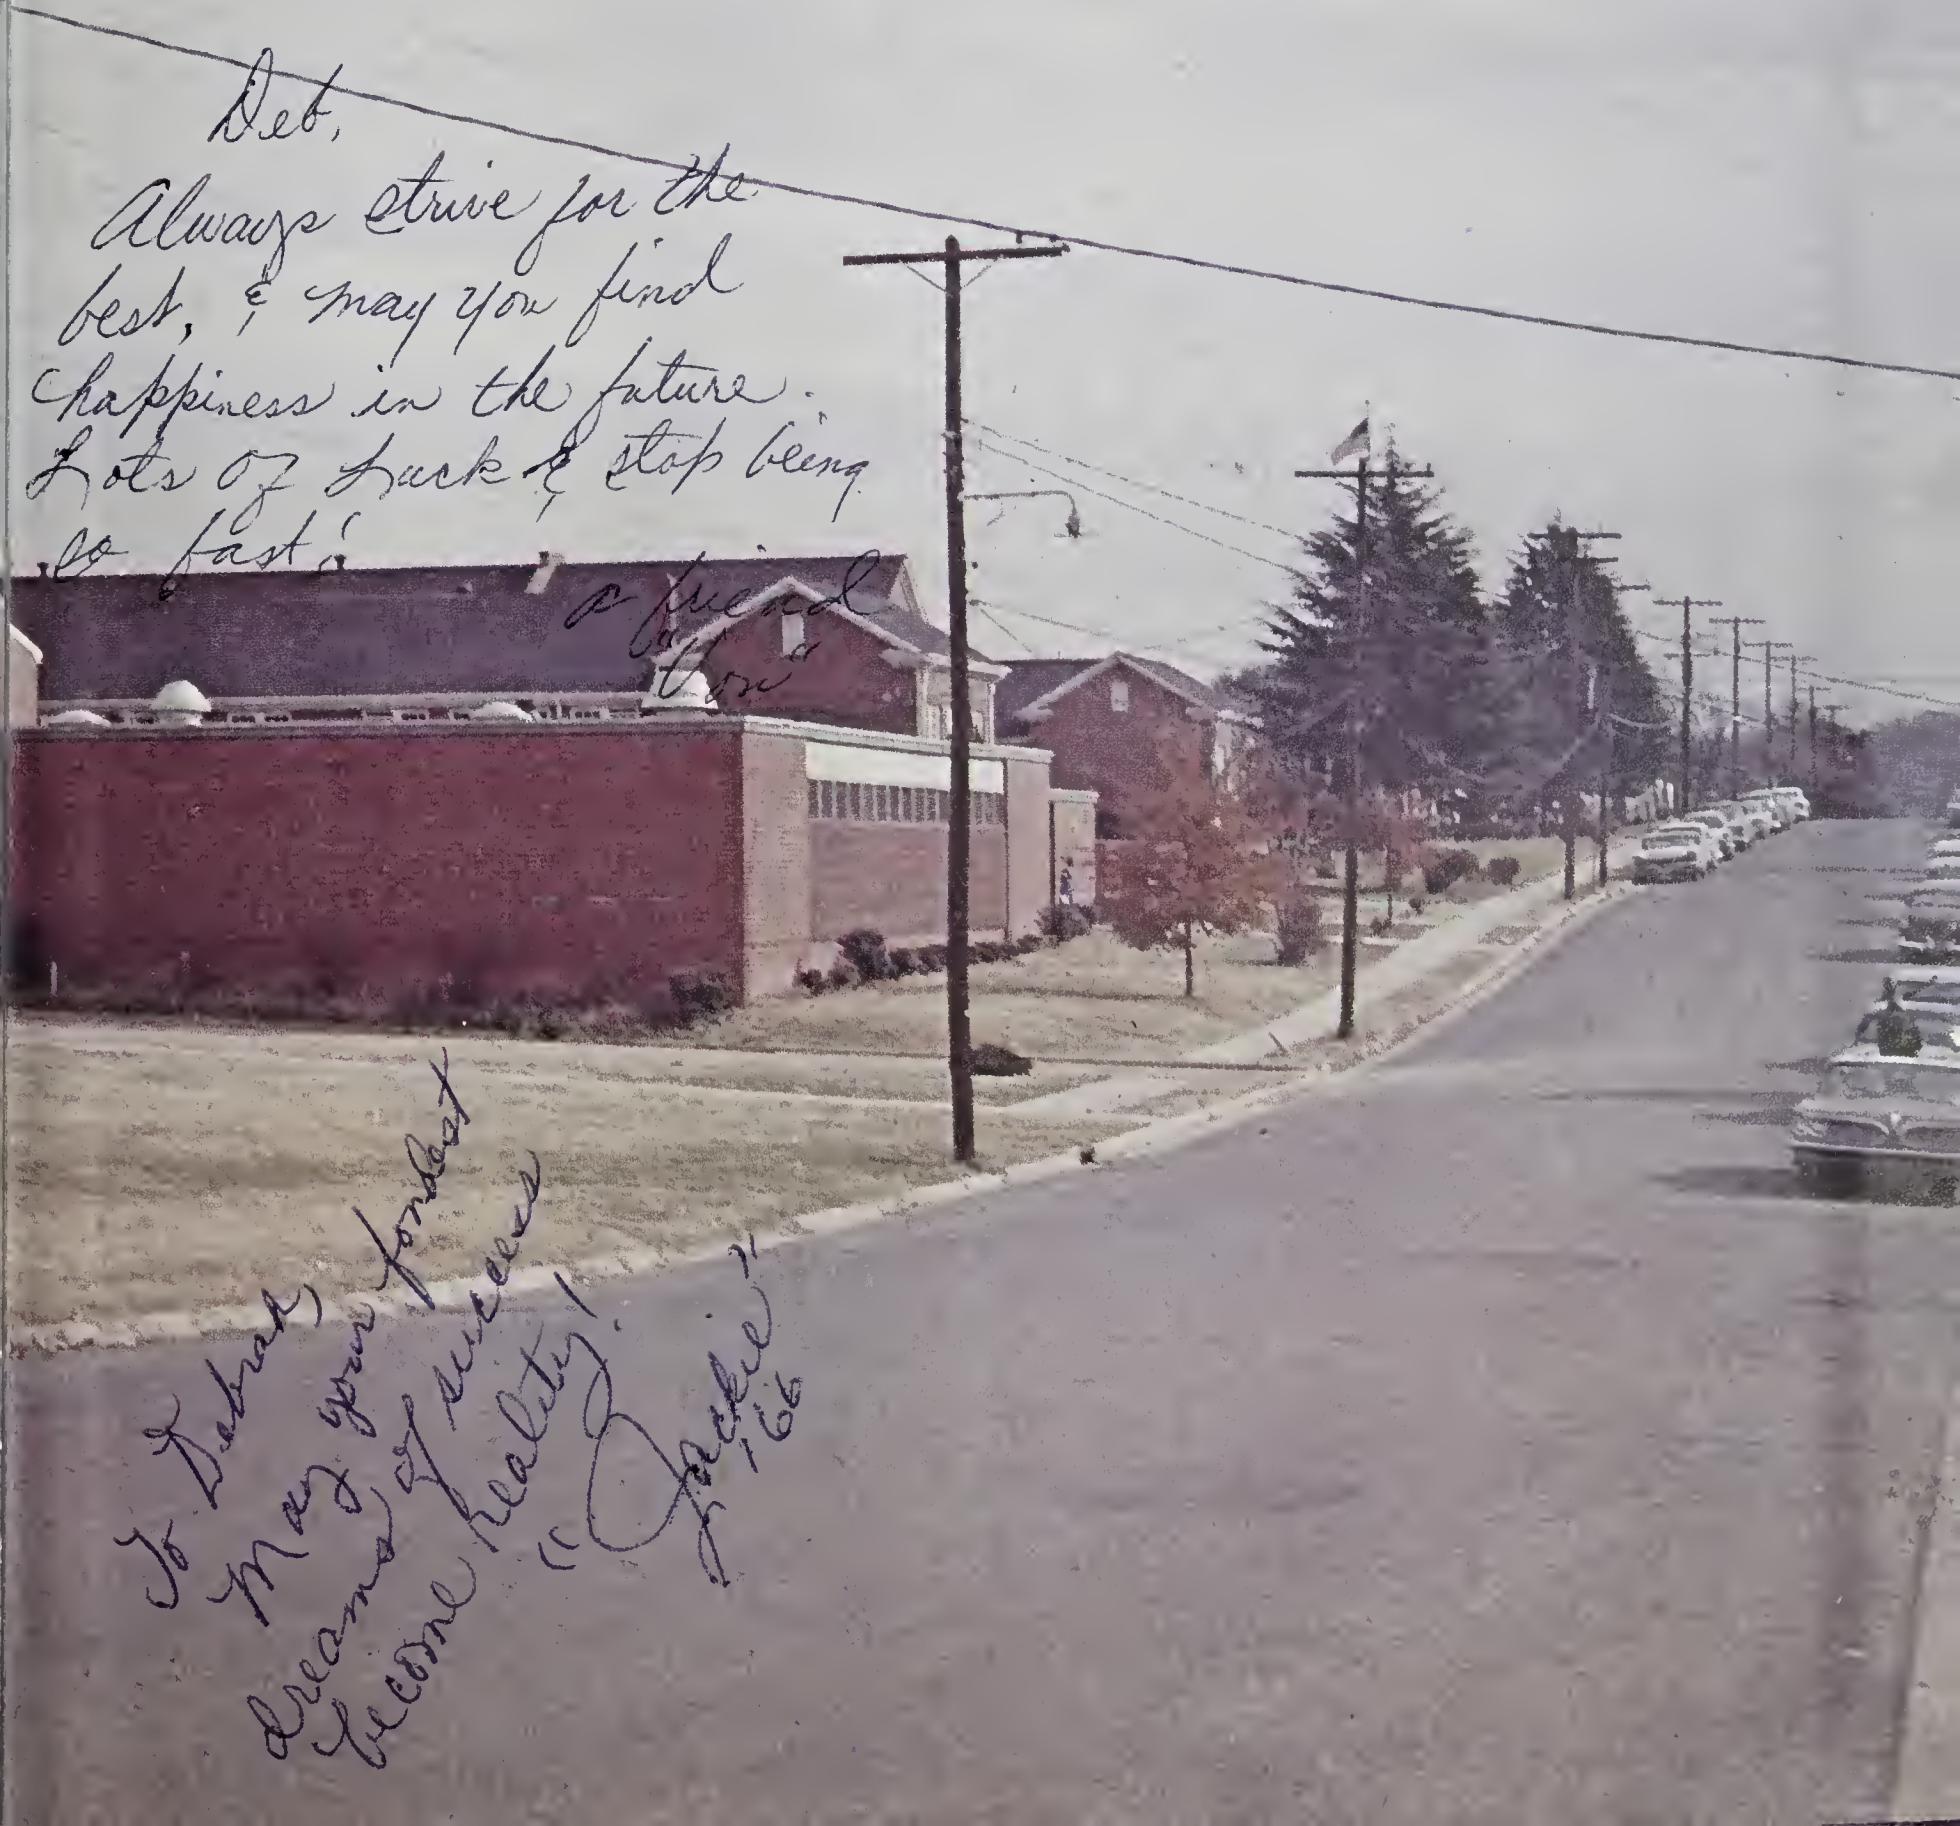 Deb,
Always strive for the
best, & may you find
happiness in the future.
Lots of Luck & stop being
so fast!
a friend
"Von"
To Debrah,
May your fondest
dreams of success
become reality!
"Jackie"
'66